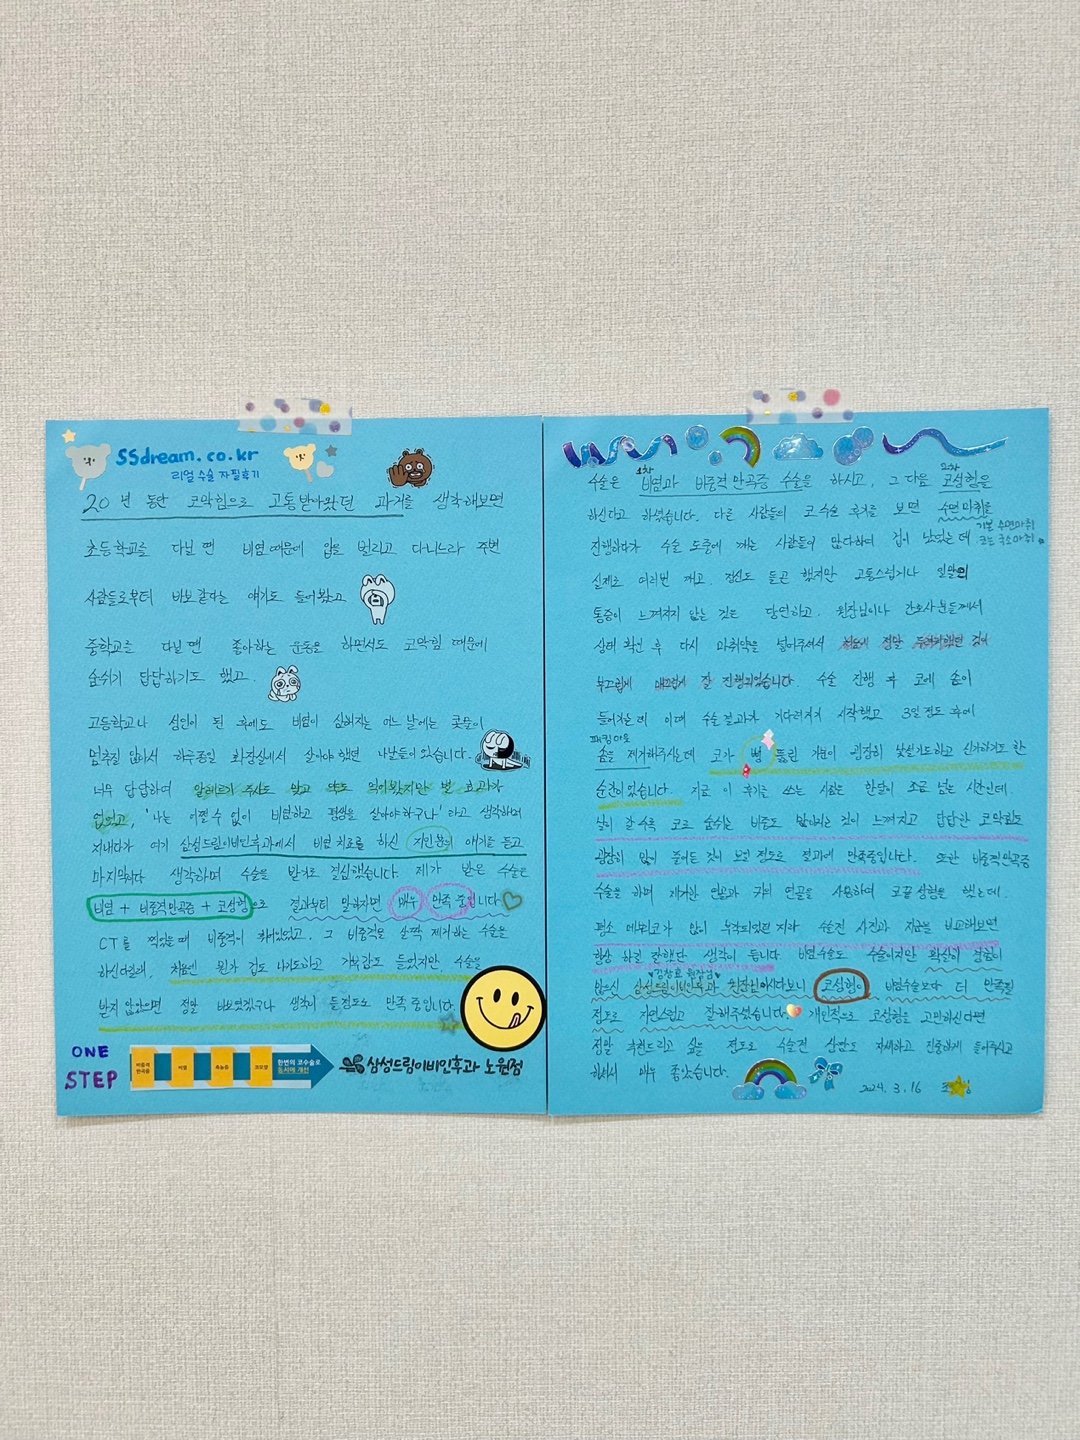 SSdream.co.kr
리얼 수술 자필후기
20년 동안 코막힘으로 고통받아왔던 과거를 생각해보면
초등학교를 다닐 땐 비염때문에 입을 벌리고 다니느라 주변
사람들로부터 바보같다는 얘기도 들어봤고
중학교를 다닐 땐 좋아하는 운동을 하면서도 코막힘 때문에
숨쉬기 답답하기도 했고.
고등학교나 성인이 된 후에도 비염이 심해지는 어느 날에는 콧물이
멈추질 않아서 하루종일 화장실에서 살아야 했던 나날들이 있습니다.
너무 답답하여 알레르기 주사도 맞고 약도 먹어봤지만 별 효과가
없었고, '나는 어쩔 수 없이 비염하고 평생을 살아야 하구나' 라고 생각하며
지내다가 여기 삼성드림이비인후과에서 비염 치료를 하신 지인분의 얘기를 듣고
마지막이다 생각하며 수술을 받기로 결심했습니다. 제가 받은 수술은
비염 + 비중격만곡증 + 코성형으로 결과부터 말하자면 매우 만족 중입니다
CT를 찍었을 때 비중격이 휘어있었고, 그 비중격을 살짝 제거하는 수술을
하신다길래, 처음엔 뭔가 겁도 나기도하고 거부감도 들었지만 수술을
받지 않았으면 정말 바보였겠구나 생각이 들정도로 만족 중입니다.
ONE
STEP
비중격
만곡증
비염
축농증
코모양
한번의 코수술로
동시에 개선
삼성드림이비인후과 노원점
1차 2차
수술은 비염과 비중격만곡증 수술을 하시고, 그 다음 코성형을
하신다고 하셨습니다. 다른 사람들의 코수술 후기를 보면 수면마취를
기본 수면마취
진행하다가 수술 도중에 깨는 사람들이 많다하여 겁이 났었는데
코는 국소마취
실제로 여러번 깨고, 정신도 들곤 했지만 고통스럽거나 일말의
통증이 느껴지지 않는 것은 당연하고, 원장님이나 간호사분들께서
상태 확인 후 다시 마취약을 넣어주셔서 처음에 정말 두려워했던 것이
부끄럽게 매끄럽게 잘 진행되었습니다. 수술 진행 후 코에 솜이
들어가는데 이때 수술결과가 기다려지기 시작했고 3일정도 후에
솜을 제거해주시는데 코가 뻥 뚫린 기분이 굉장히 낯설기도하고 신기하기도 한
순간이었습니다. 지금 이 후기를 쓰는 시점은 한달이 조금 넘는 시간인데.
날이 갈 수록 코로 숨쉬는 비중도 많아지는 것이 느껴지고 답답한 코막힘도
굉장히 많이 줄어든 것이 보일 정도로 결과에 만족중입니다. 또한 비중격만곡증
수술을 하며 제거한 연골과 귀의 연골을 사용하여 코끝 성형을 했는데.
평소 매부리코가 많이 부각되었던 지라 수술전 사진과 지금을 비교해보면
항상 하길 잘했다 생각이 듭니다 비염수술도 수술이지만 확실히 경험이
많으신 삼성드림이비인후과 원장님이시다보니 코성형이 비염수술보다 더 만족할
정도로 자연스럽고 잘해주셨습니다. 개인적으로 코성형을 고민하신다면
정말 추천드리고 싶을 정도로 수술전 상담도 자세하고 친절하게 들어주시고
하셔서 매우 좋았습니다.
2024. 3. 16